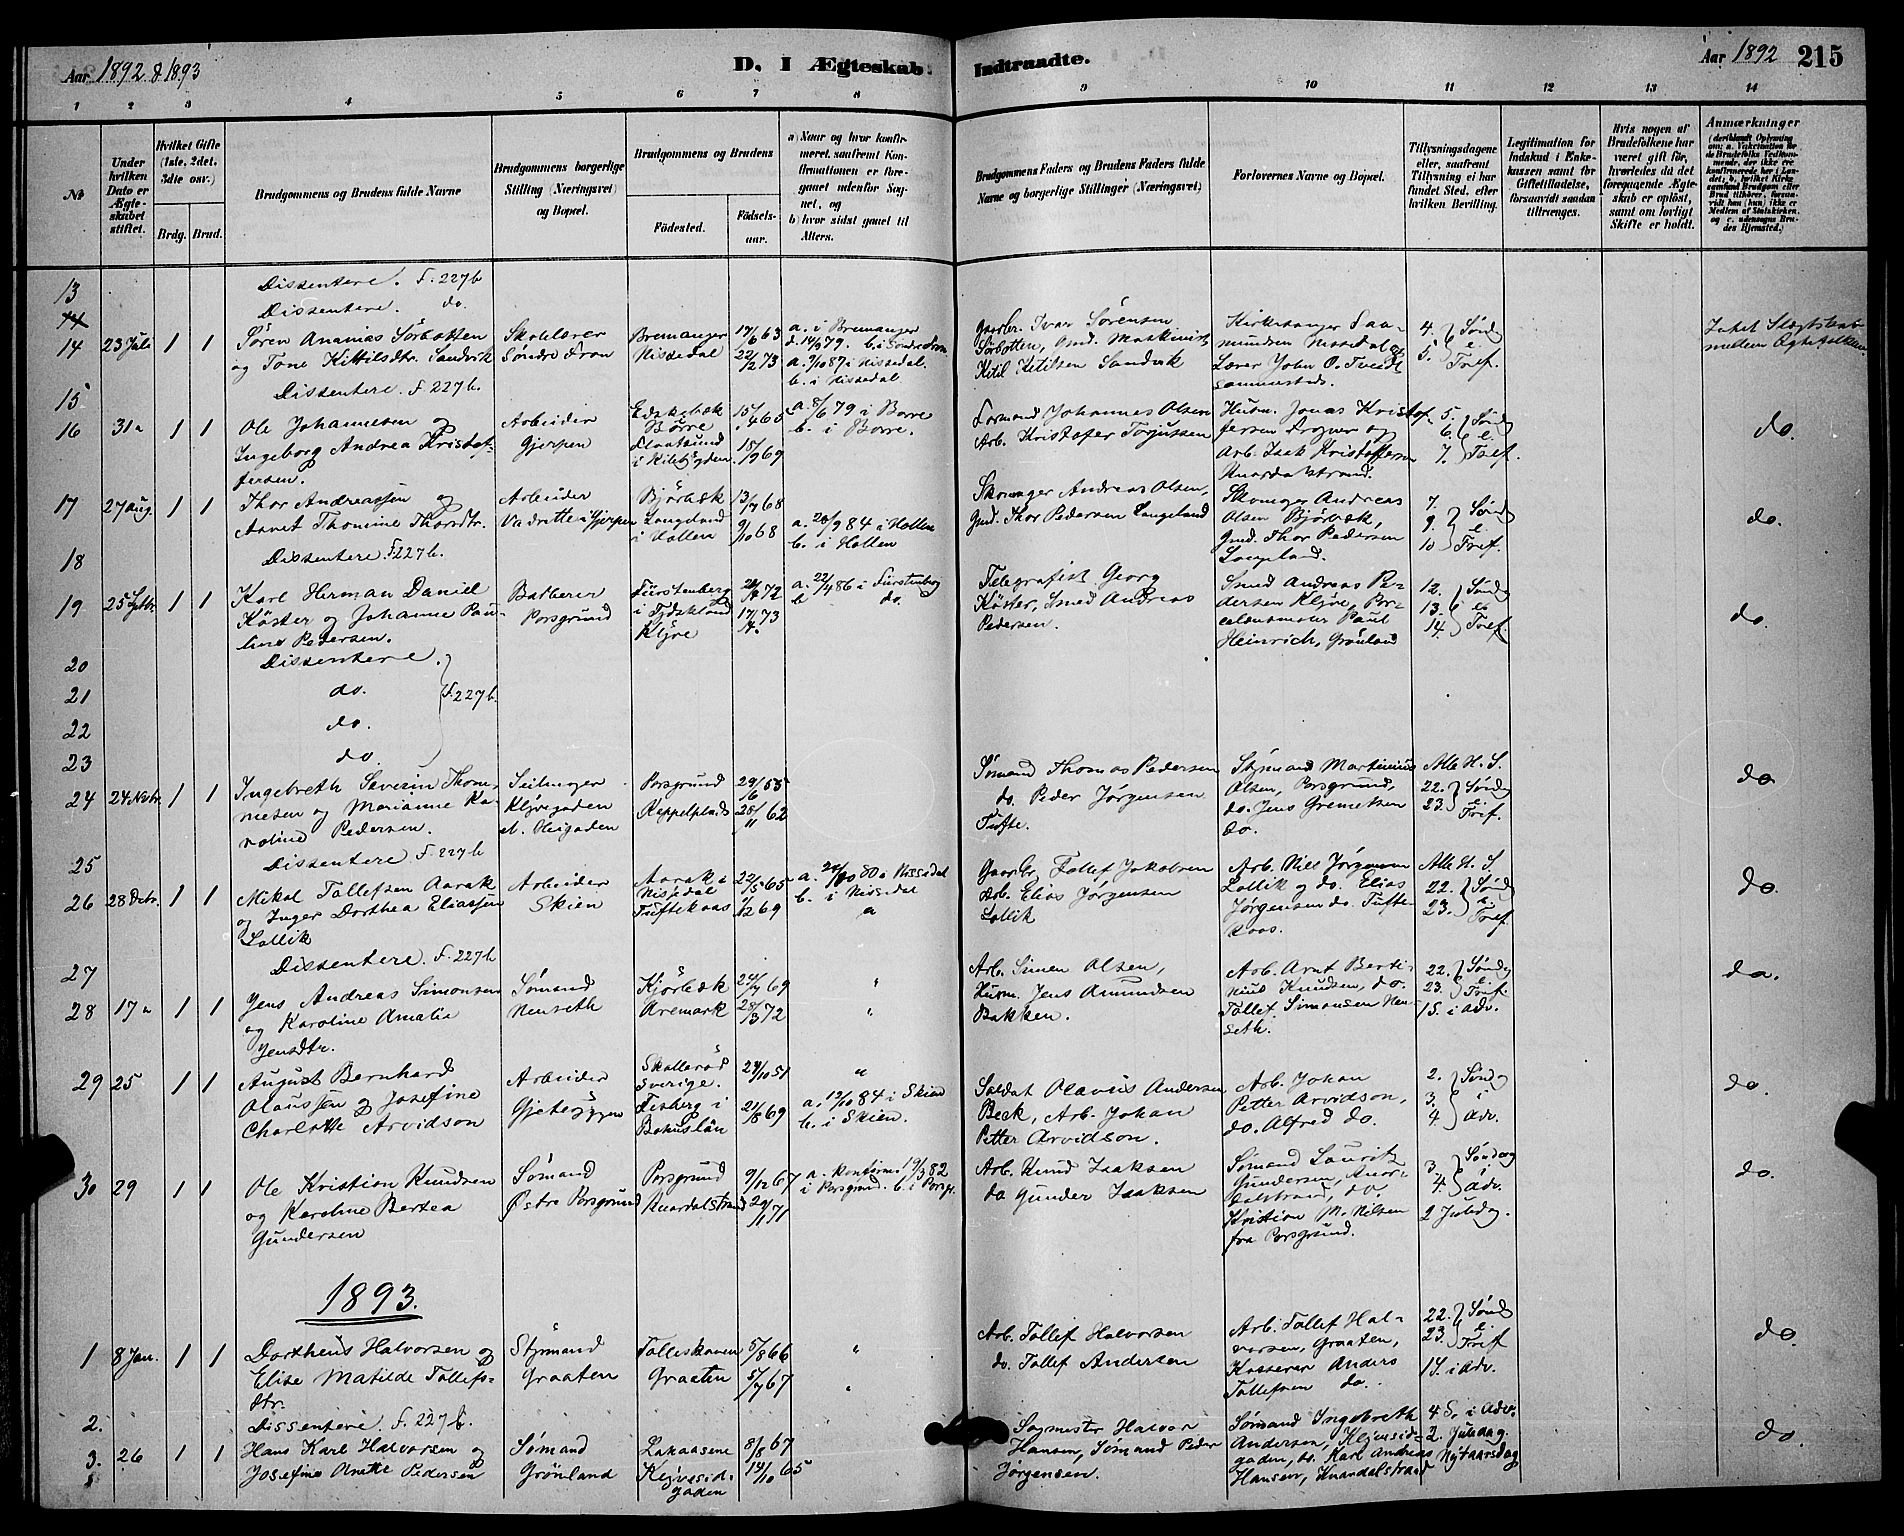 Aar 1892 & 1893
D. I Ægteskab
Indtraadte.
Aar 1892
215
1 2 3 4 5 6 7 8 9 10 11 12 13 14
No
Under hvilken Dato er Ægteskabet stiftet.
Hvilket Gifte (1ste, 2det, 3die osv.)
Brdg. Brud.
Brudgommens og Brudens fulde Navne
Brudgommens borgerlige Stilling (Næringsvei) og Bopæl.
Brudgommens og Brudens
Fødested.
Fødselsaar.
a) Naar og hvor konfirmeret, saafremt Konfirmationen er foregaaet udenfor Sognet, og
b) hvor sidst gaaet til Alters.
Brudgommens Faders og Brudens Faders fulde Navne og borgerlige Stillinger (Næringsvei)
Forlovernes Navne og Bopæl.
Tillysningsdagene eller, saafremt Tillysning ei har fundet Sted, efter hvilken Bevilling.
Legitimation for Indskud i Enkekassen samt for Giftetilladelse, forsaavidt saadan tiltrænges.
Hvis nogen af Brudefolkene har været gift før, hvorledes da det foregaaende Ægteskab er opløst, samt om lovligt Skifte er holdt.
Anmærkninger
13 Dissentere. F. 227b
Dissentere. do.
14 23 Juli 1 1 Søren Ananias Sørbotten
og Tone Kittilsdtr. Sandvik
Skolelærer
Søndre Fron
Bremanger 17/6 63
Nissedal 22/2 73
a. i Bremanger
d. 14/9 79. b. i Søndre Fron
a. 2/10 87 i Nissedal.
b. i Nissedal
Gaardbr. Ivar Sørensen
Sørbotten, Gmd. Maskinist
Kitil Kitilsen Sandvik
Kirkesanger Saamunden Nissedal og
Lærer John O. Tveit
sammesteds.
4. 5. Sønd. e. Tref.
Intet Slægtskab
mellem Ægtefolkene
15 Dissentere. F. 227b.
16 31 " 1 1 Ole Johannesen og
Ingeborg Andrea Kristoffersen.
Arbeider
Gjerpen
Borre 15/4 65
15/9 69
a. 8/6 79 i Borre
b. i Borre.
Formand Johannes Olsen
Arb. Kristofer Torjussen
Husm. Jonas Kristoffersen
og
Arb. Isak Kristoffersen
Knardalstrand.
5. 6. 7. Sønd. e. Tref.
do.
17 27 Aug. 1 1 Thor Andreassen og
Aanet Thomine Thorsdtr.
Arbeider
Vadrette i Gjerpen
Bjørbæk 13/7 68
Langeland
i Hollen 9/10 68
a. 28/9 84 i Hollen
b. i Hollen
Skomager Andreas Olsen,
Gmd. Thor Pedersen Langeland
Skomager Andreas
Olsen Bjørbæk,
Gmd. Thor Pedersen
Langeland.
7. 9. 10 Sønd. e. Tref.
do.
18 Dissentere. F. 227b.
19 25 Septbr. 1 1 Karl Herman Daniel
Köster og Johanne Pauline Pedersen.
Barberer
Porsgrund
Fürstenberg
i Tydskland 72
Klyve 73
a. 22/4 86 i Fürstenberg
b do.
Telegrafist Georg
Köster, Smed Andreas
Pedersen.
Smed Andreas Pedersen Klyve, Porcelænsmaler Paul
Heinrich, Grønland
12. 13. 14. Sønd. e. Tref.
do.
20 Dissentere.
21 do. F. 227b.
22 do.
23 do
24 24 Novbr. 1 1 Ingebreth Severin Thomesen og Marianne Karoline Pedersen.
Seilmager
Klyvegaden
Porsgrund 29/6 55
Reppelplads 28/11 62
Sømand Thomas Pedersen
do. Peder Jørgensen
Tufte.
Styrmand Martinius
Olsen, Porsgrund,
do. Jens Gremetsen
do.
Alle H. S.
22. 23. Sønd. e. Tref.
do
25 Dissentere F. 227b
26 28 Debr. 1 1 Mikal Tallefsen Aarak
og Inger Dorthea Eliassen
Lollik
Arbeider
Skien
Aarak i
Nissedal 22/5 65
Tuftekaas 1/12 69
a. 80 i Nissedal
b. i Nissedal
Gaardbr. Tallef Jakobsen
Arb. Elias Jørgensen
Lollik
Arb. Nils Jørgensen
Lollik og do. Elias
Jørgensen do. Tuftekaas.
Alle H. S.
22. 23. Sønd. e. Tref.
do.
27 Dissentere. F. 227b
28 17 " 1 1 Jens Andreas Simonsen
og Karoline Amalie
Jensdtr.
Sømand
Nenseth
Kjørbæk 24/7 69
Aremark 28/3 72
"
"
Arb. Simen Olsen,
Husm. Jens Amundsen
Bakken.
Arb. Arnt Bertinius Knudsen, do.
Tollef Simonsen Nenseth.
22. 23. Sønd. e. Tref.
1 S. i Adv.
do.
29 25 1 1 August Bernhard
Olaussen og Josefine
Charlotte Arvidson
Arbeider
Sverige. 51
i
Bohuslän 21/8 69
"
a. 12/10 84 i Skien
b. i Skien.
Soldat Olavus Andersen
Beck, Arb. Johan
Petter Arvidson.
Arb. Johan
Petter Arvidson,
do. Alfred do.
2. 3. 4. Sønd. i Adv.
do.
30 29 1 1 Ole Kristian Knudsen
og Karoline Bertea
Gundersen
Sømand
Østre Porsgrund
Porsgrund 9/12 67
Knardalstrand 29/11 71
a. konfirm. 19/3 82
i Porsgrund. b. i Porsgr.
Arb. Knud Isaksen
do Gunder Isaksen
Sømand Lauritz
Gundersen, Knardalstrand, do.
Kristian M. Nilsen
fra Porsgrund.
3. 4. Søndag i Adv.
2 Juledag.
do.
1893.
1 8 Jan. 1 1 Dortheus Halvorsen og
Elise Matilde Tollefsdtr.
Styrmand
Graaten
Folleskaven 5/8 66
Graaten 5/7 67
"
"
Arb. Tollef Halvorsen
do. Tollef Andersen
Arb. Tollef Halvorsen, Graaten,
Kasserer Anders
Tollefsen do.
22. 23. Sønd. e. Tref
1 S. i Adv.
do
2. Dissentere. F. 227b.
3. 26 1 1 Hans Karl Halvorsen og
Josefine Anette Pedersen
Sømand
Grønland
Lakaasene 8/8 67
Klyvesidgaden 14/10 65
Sagmester Halvor
Hansen, Sømand Peder
Jørgensen.
Sømand Ingebreth
Andersen, Klyvesidgaden, do. Karl Andreas
Hansen, Knardalstrand
4 S. i Adv.
2. Juledag.
Nytaarsdag
do.